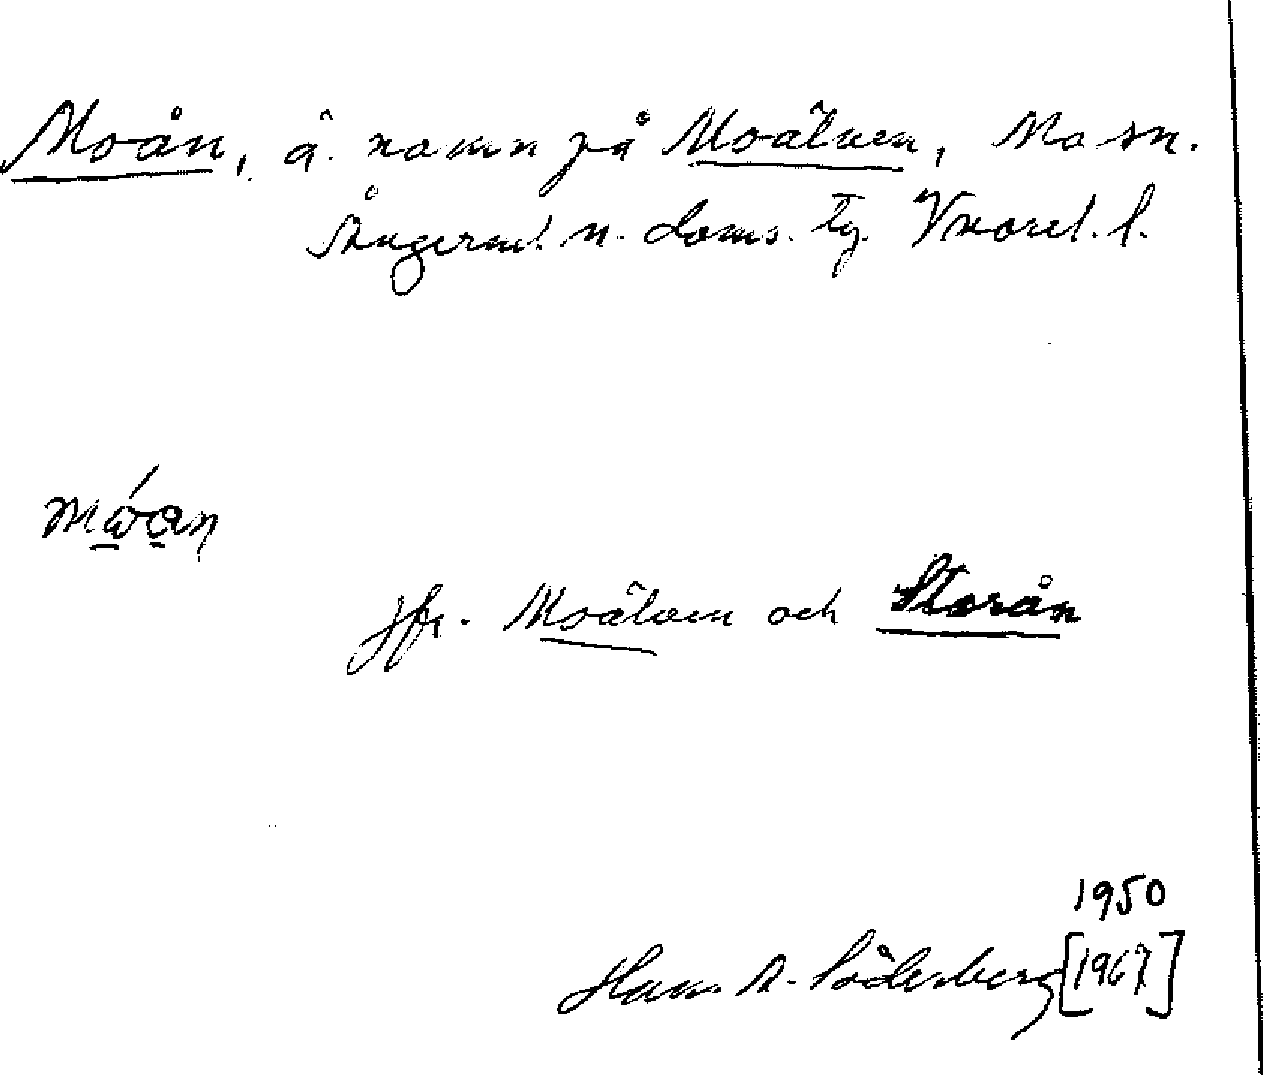 Moån, å. namn på Moälven, Mo sn.
Ångerml. n. doms. tg. Vnorrl. l.
jfr. Moälven och Storån
1950
Hans A. Söderberg [1967]